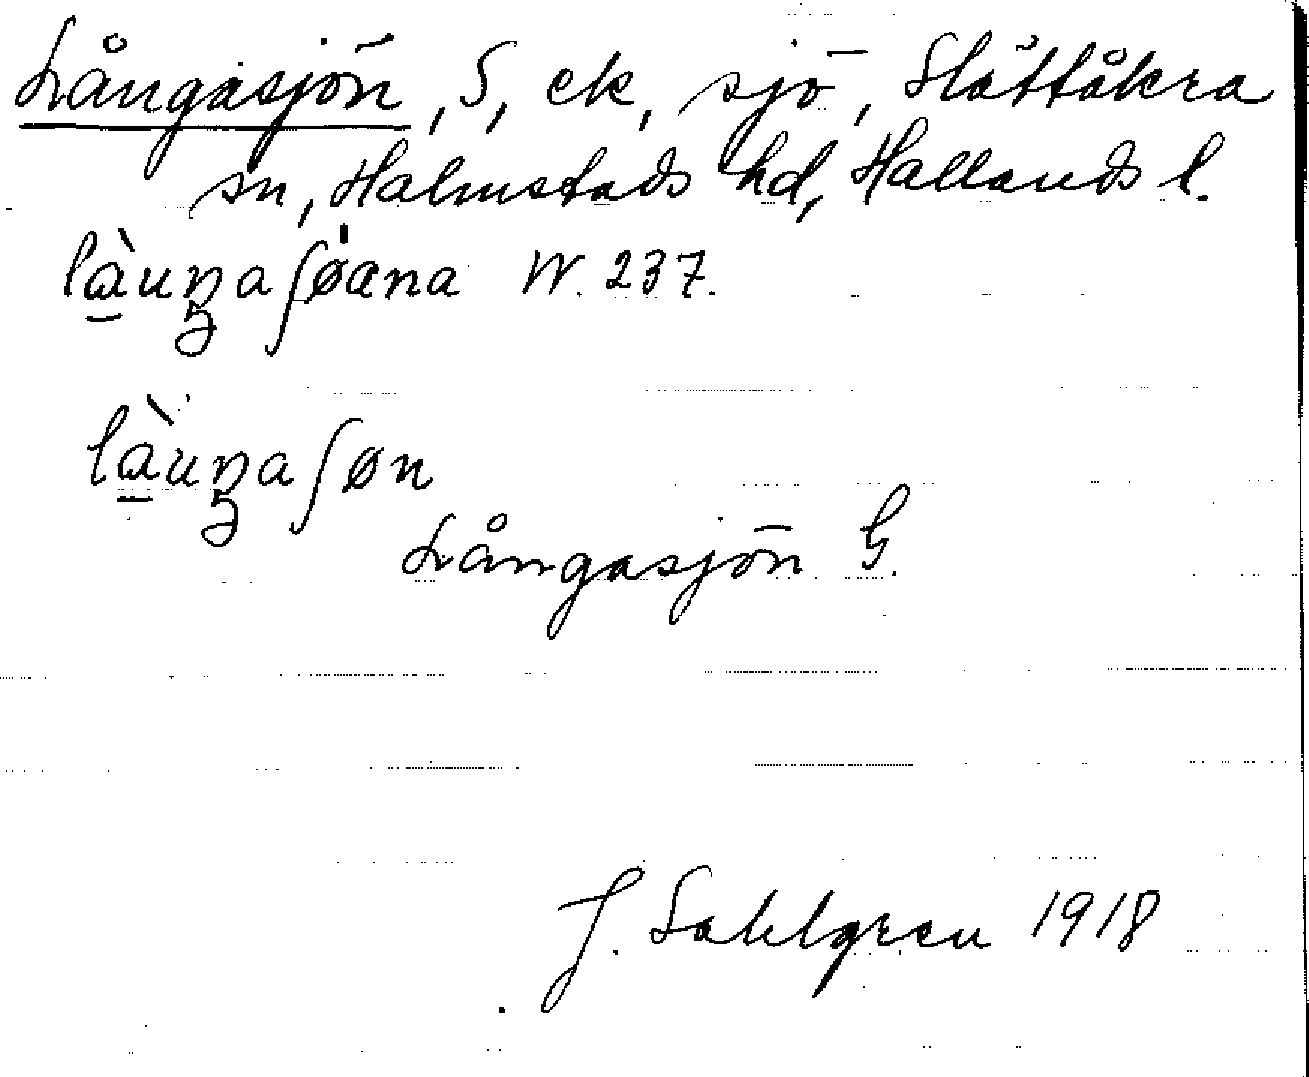 Långasjön, S, ek, sjö, Slättåkra
sn, Halmstads hd, Hallands l.
W. 237.
Långasjön G.
J. Sahlgren 1918